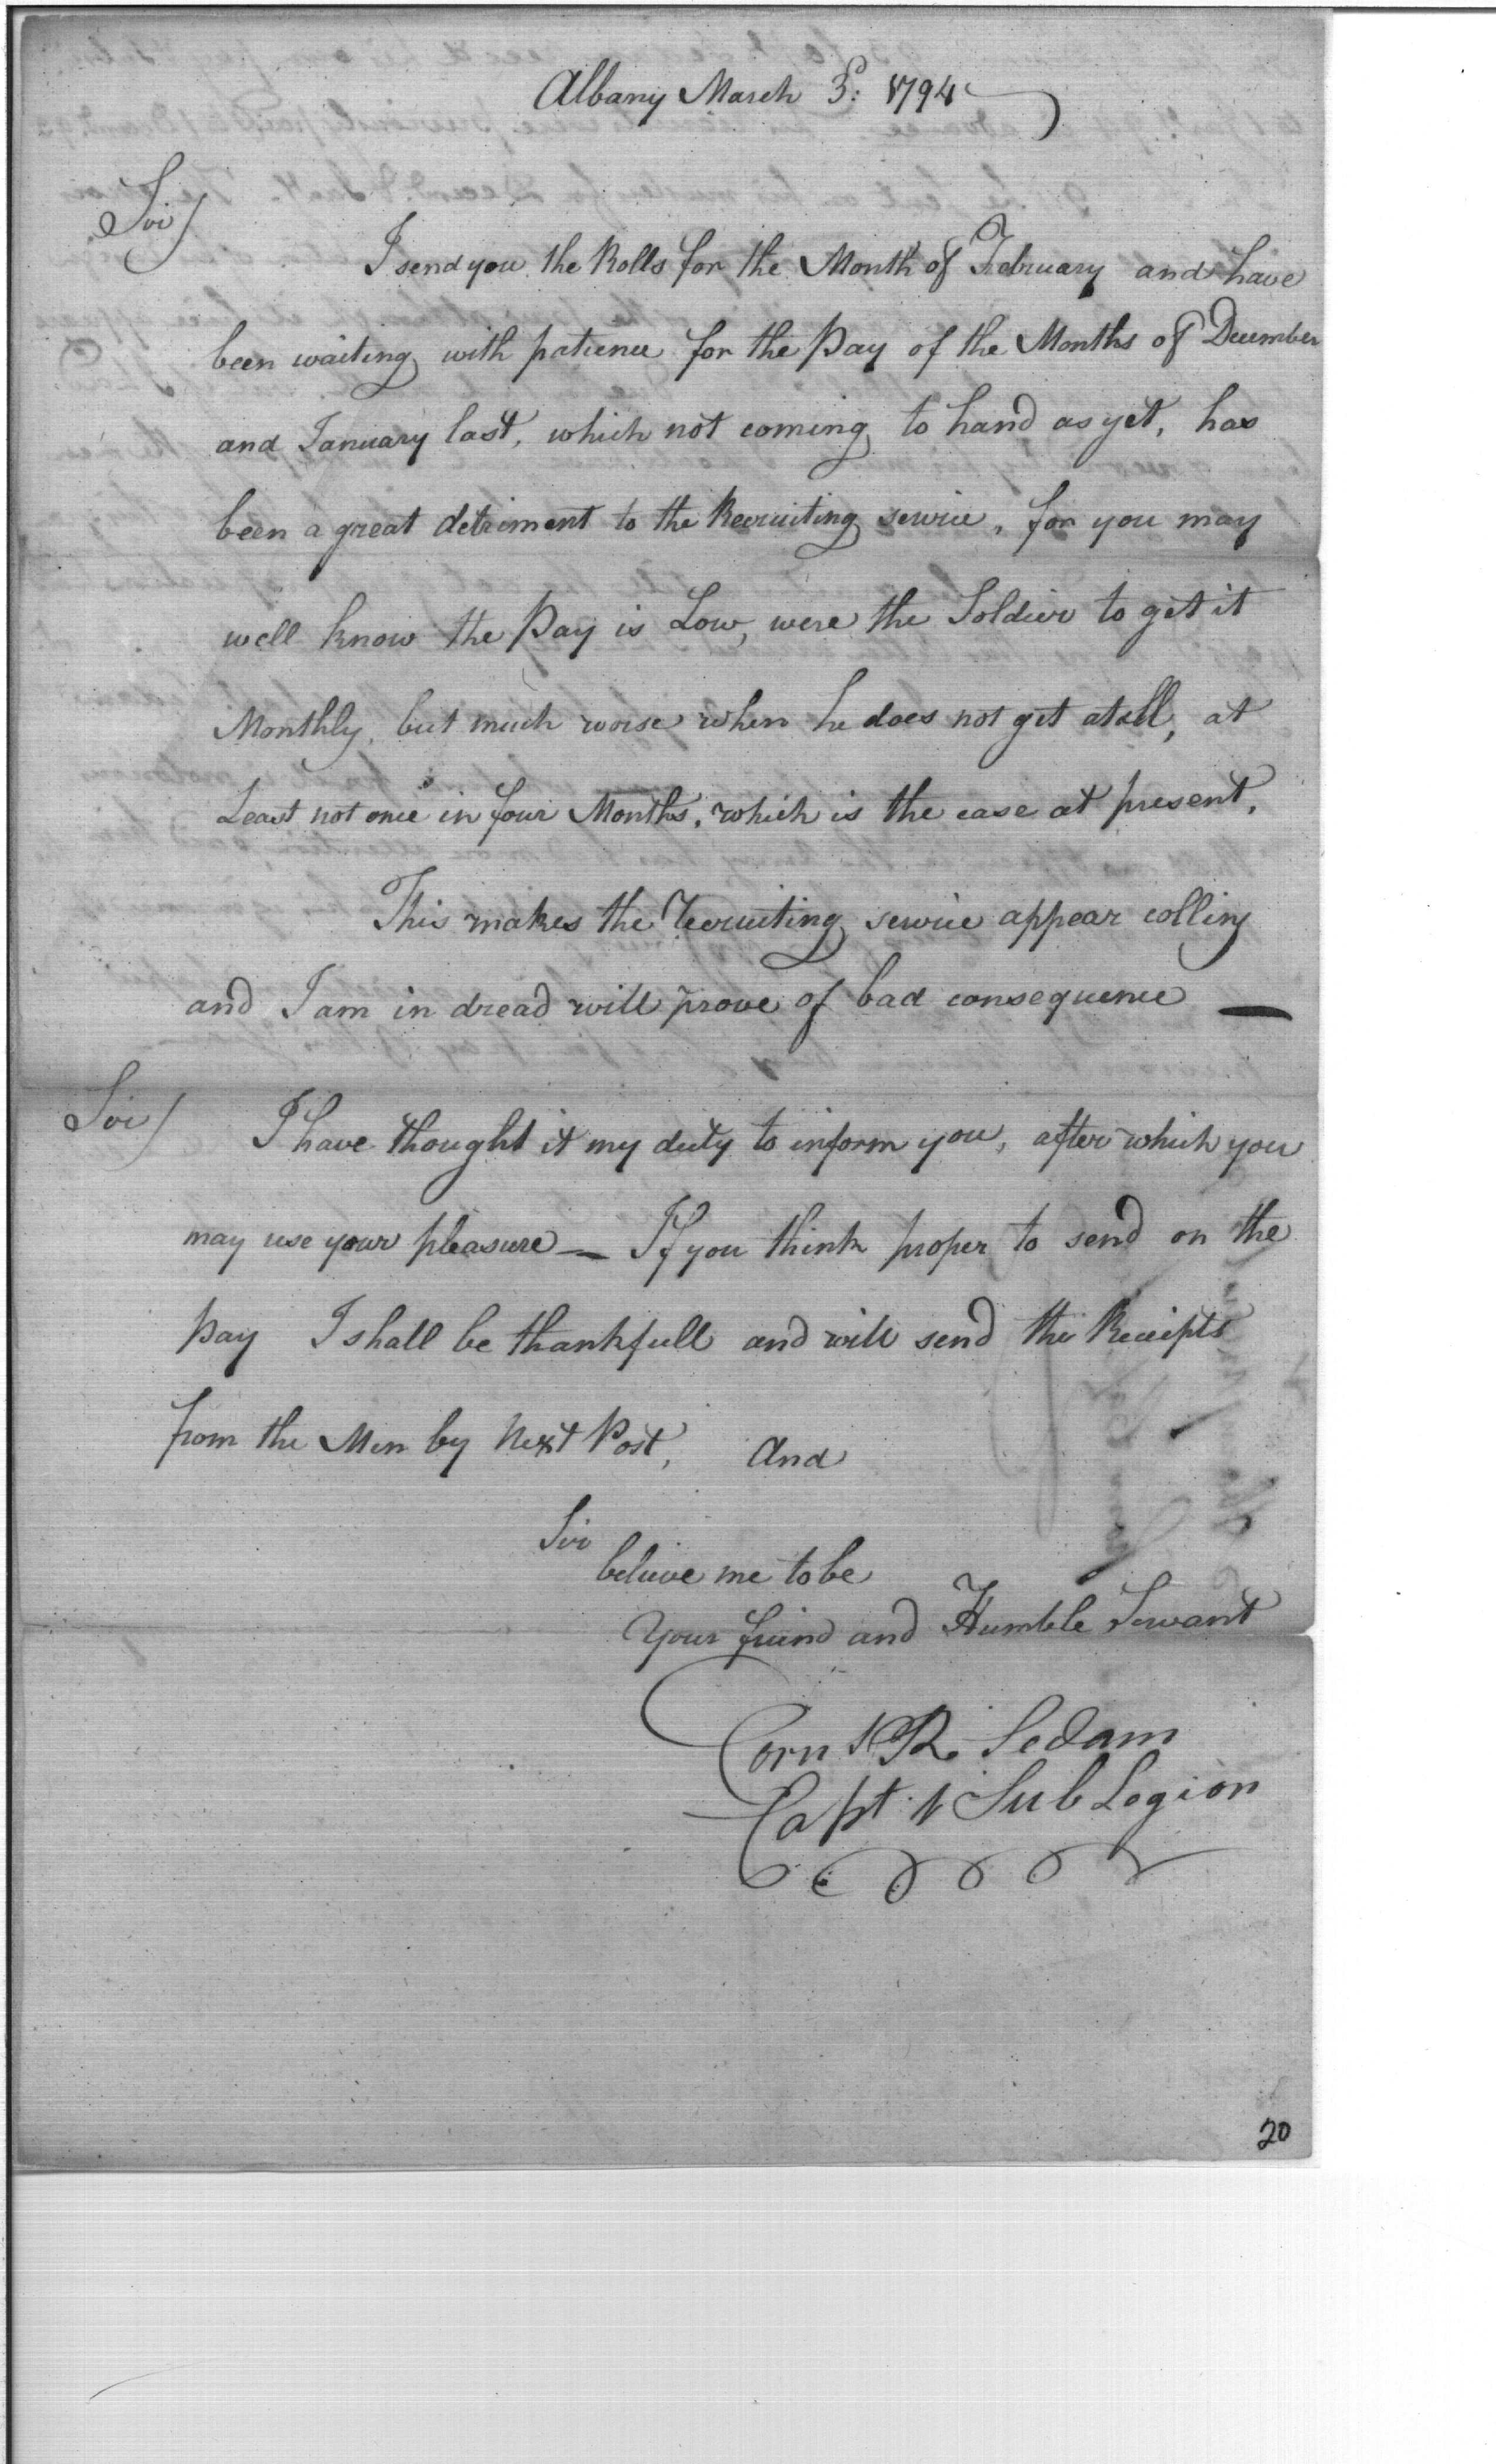 Albany March 3d: 1794
Sir/
I send you the Rolls for the Month of February and have
been waiting with patience for the Pay of the Months of December
and January last, which not coming to hand as yet, has
been a great detriment to the Recruiting service, for you may
well know the Pay is Low, were the Soldier to get it
Monthly, but much worse when he does not get atall, at
Least not once in four Months, which is the case at present.
This makes the recruiting service appear colling
and I am in dread will prove of bad consequence —
Sir/ I have thought it my duty to inform you, after which you
may use your pleasure — If you think proper to send on the
pay I shall be thankfull and will send the Receipts
from the Men by Next Post, And
Sir
believe me to be
Your friend and Humble Servant
Corns R. Sedam
Capt. 1 Sub Legion
20